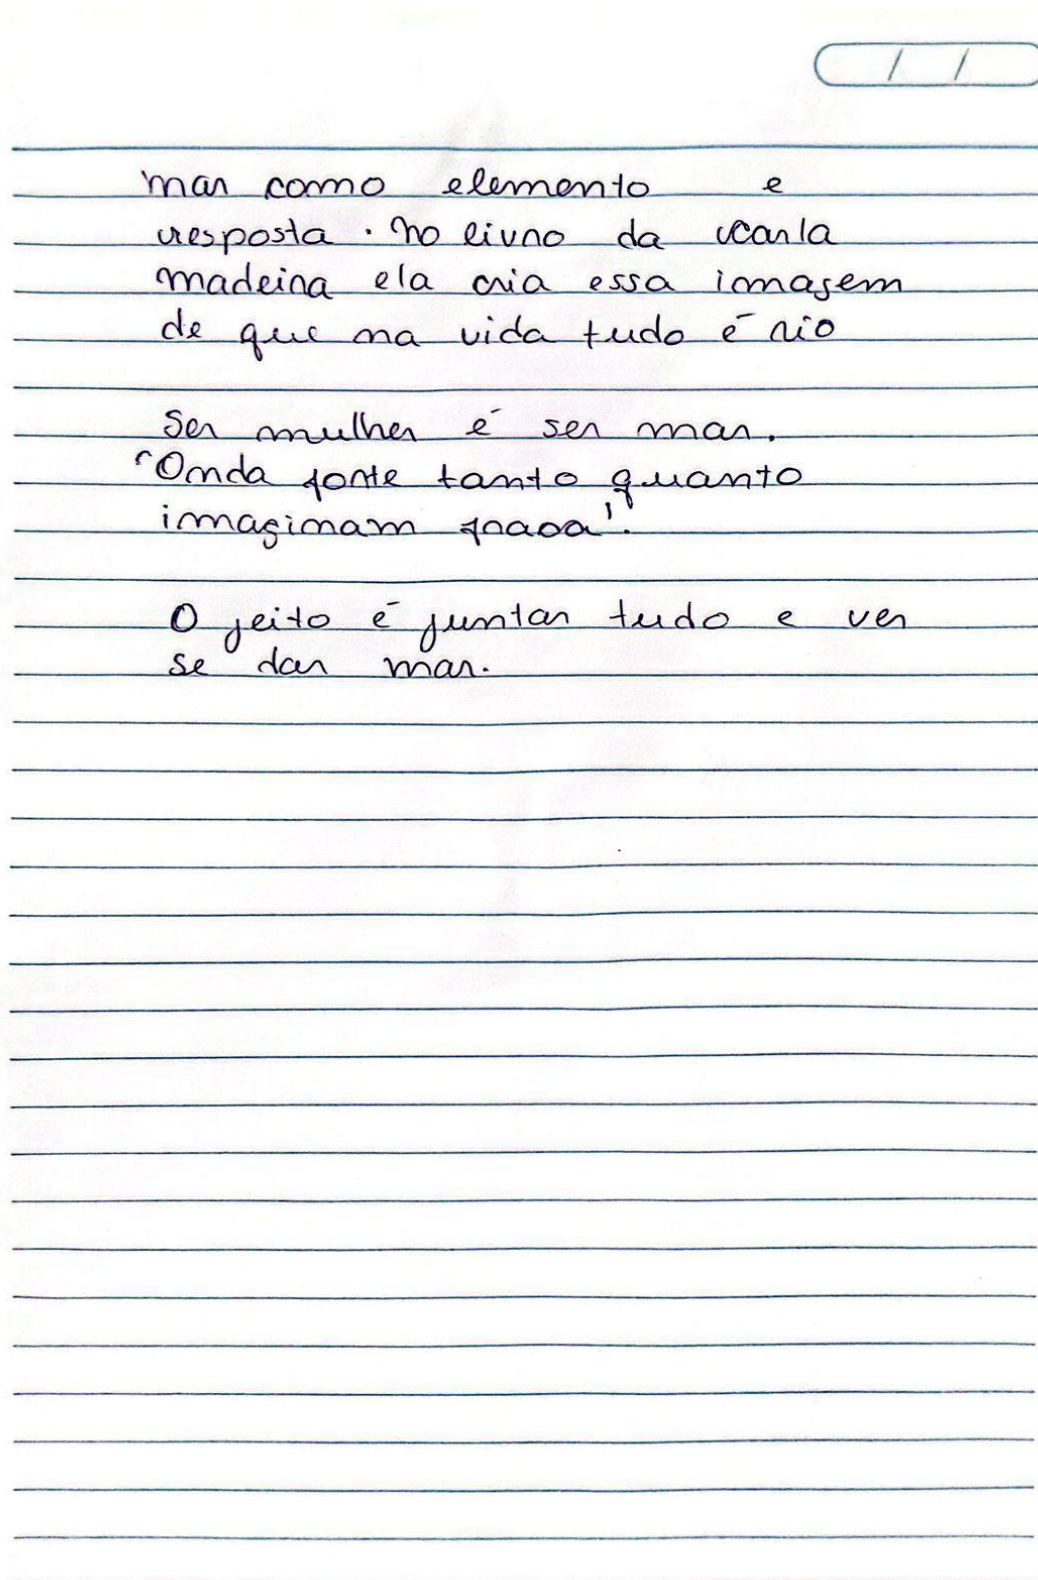 / /
mar como elemento e
resposta. no livro da carla
madeira ela cria essa imagem
de que na vida tudo é rio
Ser mulher é ser mar.
"Onda forte tanto quanto
imaginam fraca".
O jeito é juntar tudo e ver
se dar mar.